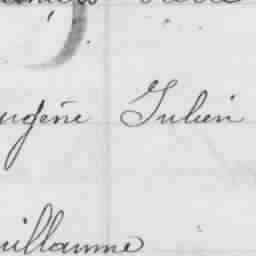 ugène Julien
uillaume